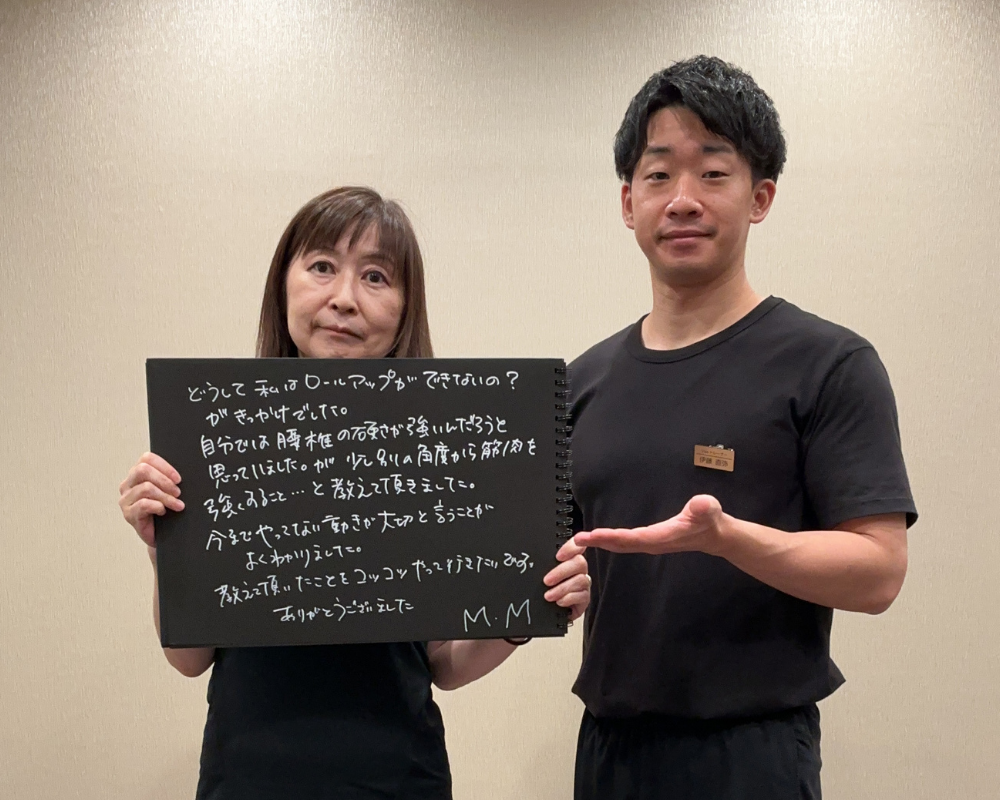 どうして私はロールアップができないの？
がきっかけでした。
自分では腰椎の硬さが強いんだろうと
思っていました。が少し別の角度から筋肉を
強くすること…と教えて頂きました。
今までやってない動きが大切と言うことが
よくわかりました。
教えて頂いたことをコツコツやって行きたいです。
ありがとうございました
M.M
伊藤